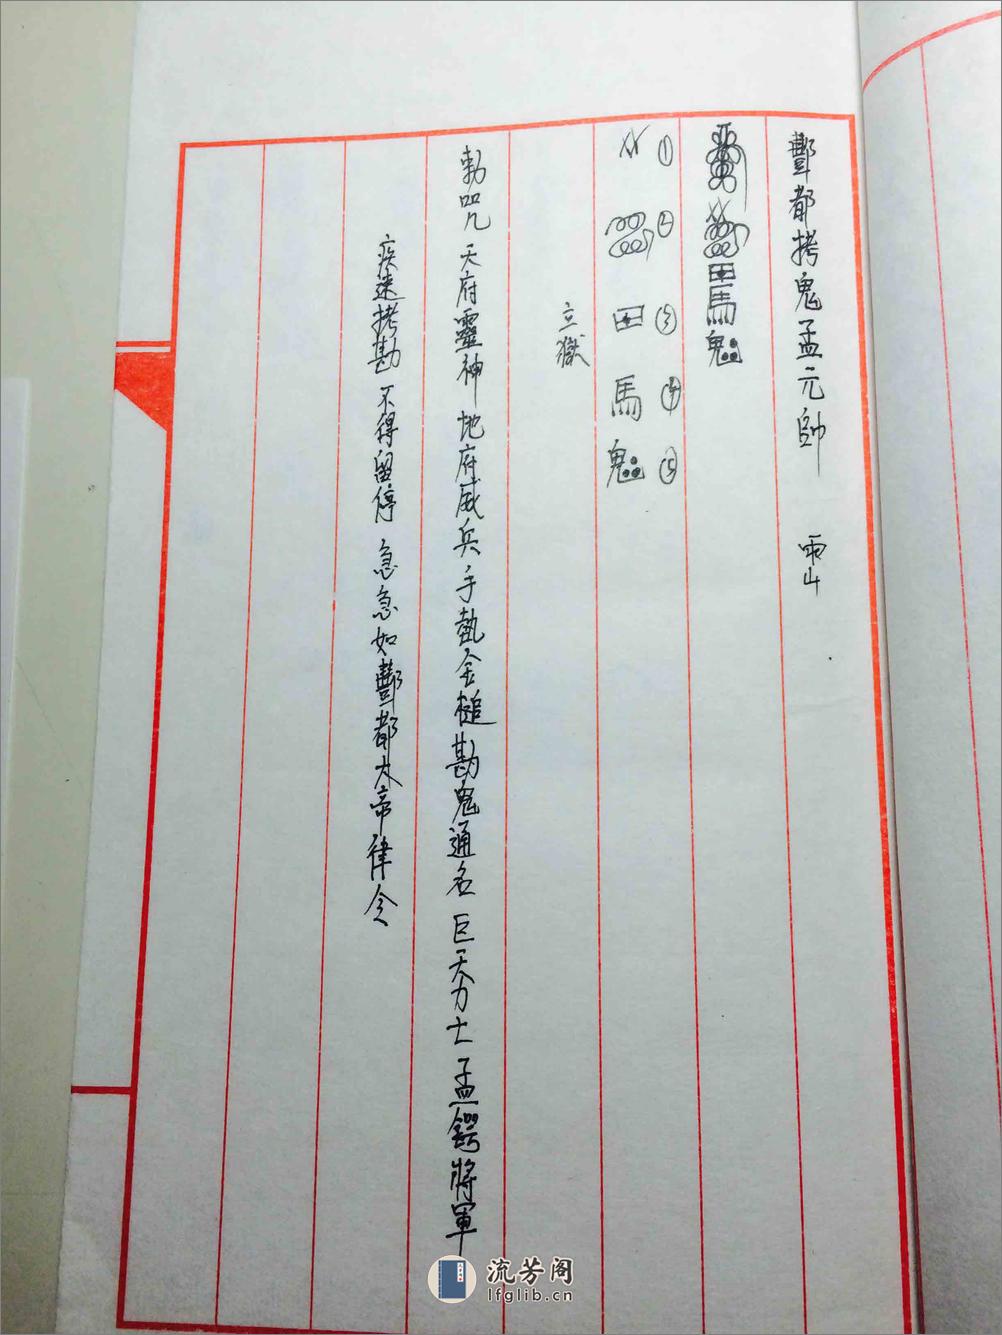 酆都拷鬼孟元帥
馬鬼
① ② ③ ④ ⑤
田 馬
立獄
勅咒 天府靈神 地府威兵 手執金槌 勘鬼通名 巨天力士 孟鍔將軍
疾速拷勘 不得留停 急急如酆都大帝律令
流芳阁
lfglib.cn